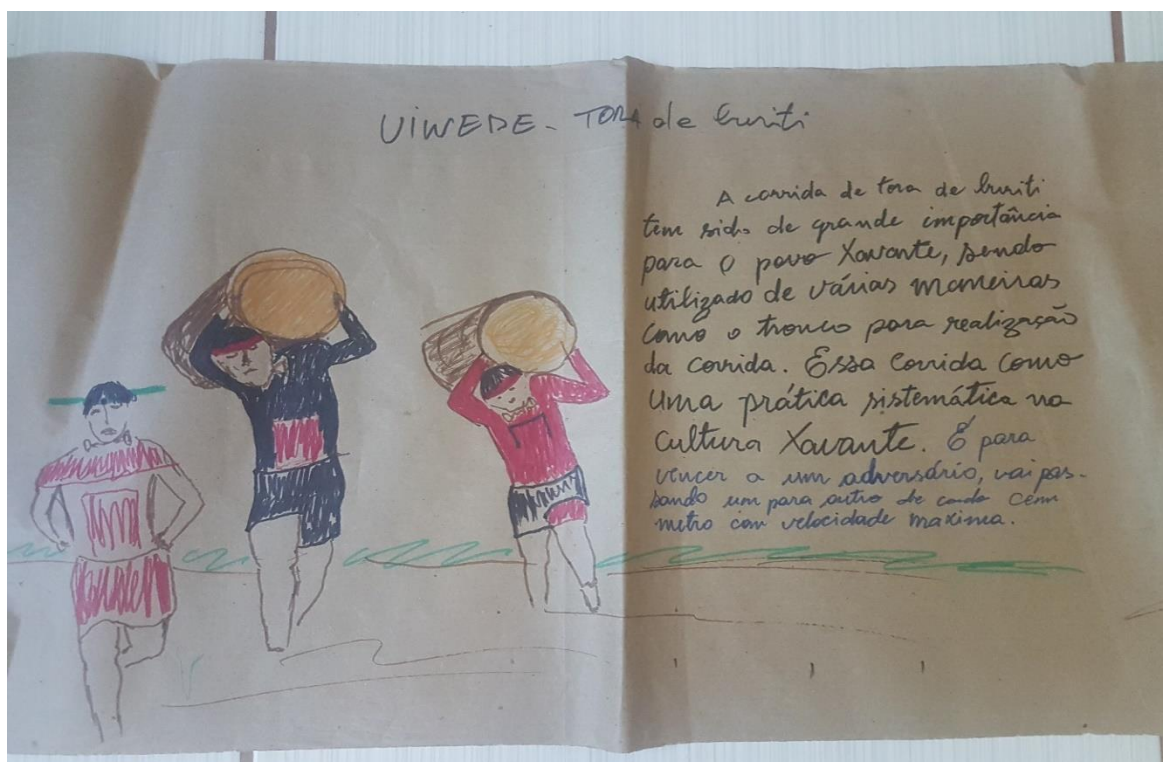 UIWEDE - TORA de buriti
A corrida de tora de buriti
tem sido de grande importância
para o povo Xavante, sendo
utilizado de várias maneiras
como o tronco para realização
da corrida. Essa corrida como
uma prática sistemática na
cultura Xavante. É para
vencer a um adversário, vai pas-
sando um para outro de cada cem
metro com velocidade maxima.